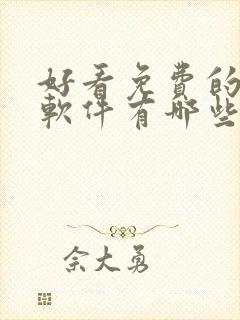 好看免費的
軟件有那些
佘大勇